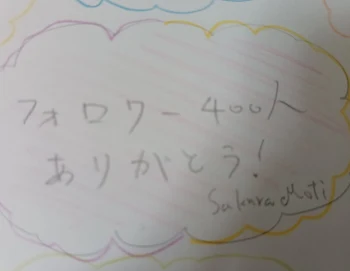 フォロワー400人
ありがとう!
Sakura Moti